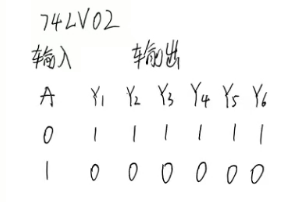 74LV02
输入 输出
A Y1 Y2 Y3 Y4 Y5 Y6
0 1 1 1 1 1 1
1 0 0 0 0 0 0